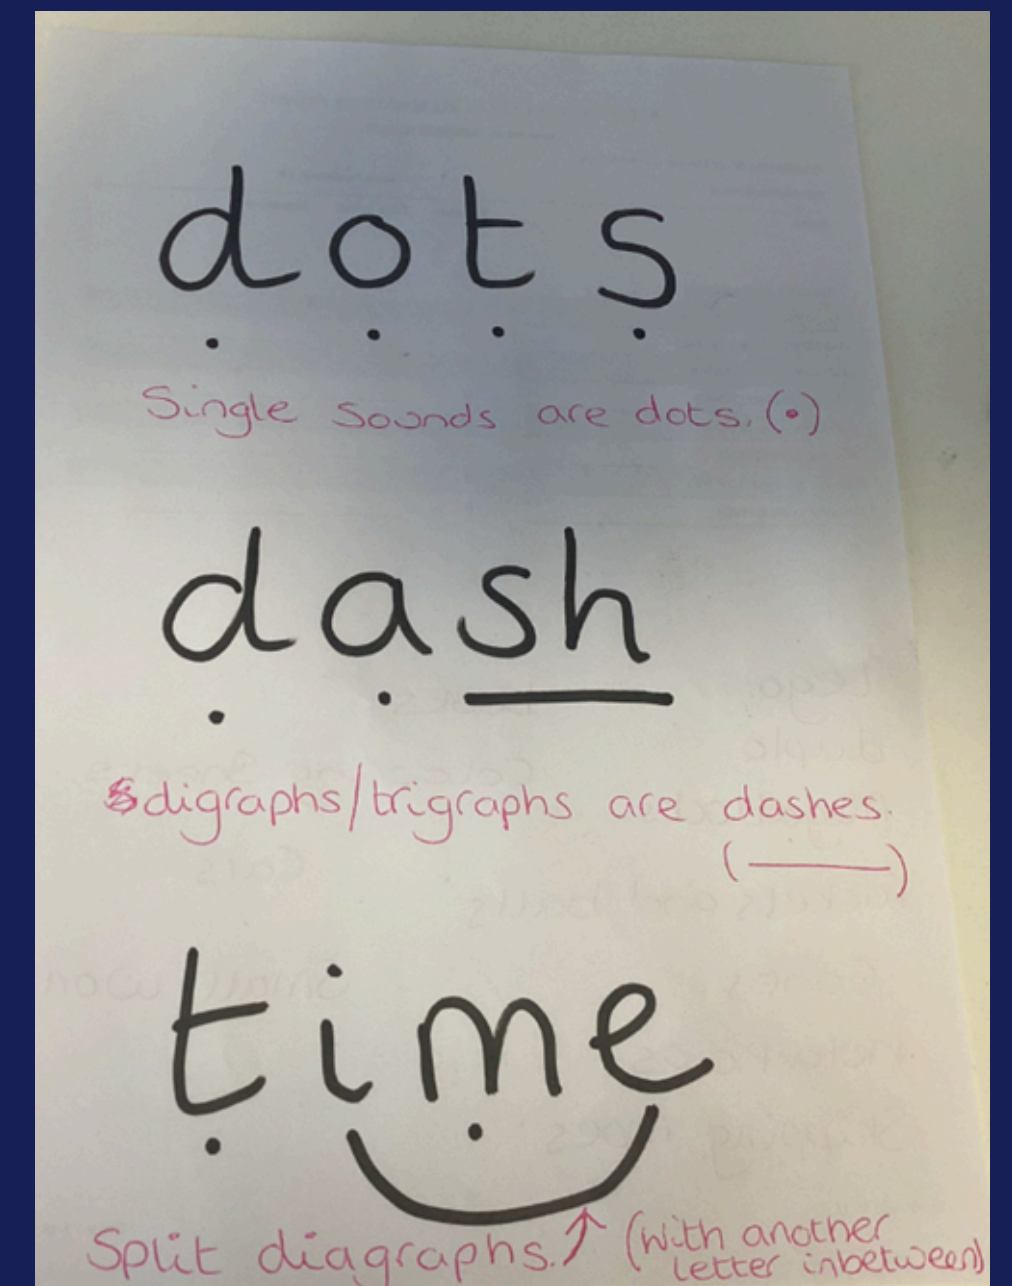 dots
Single sounds are dots. (•)
dash
digraphs/trigraphs are dashes.
(——)
time
Split diagraphs.↑ (with another
letter inbetween)